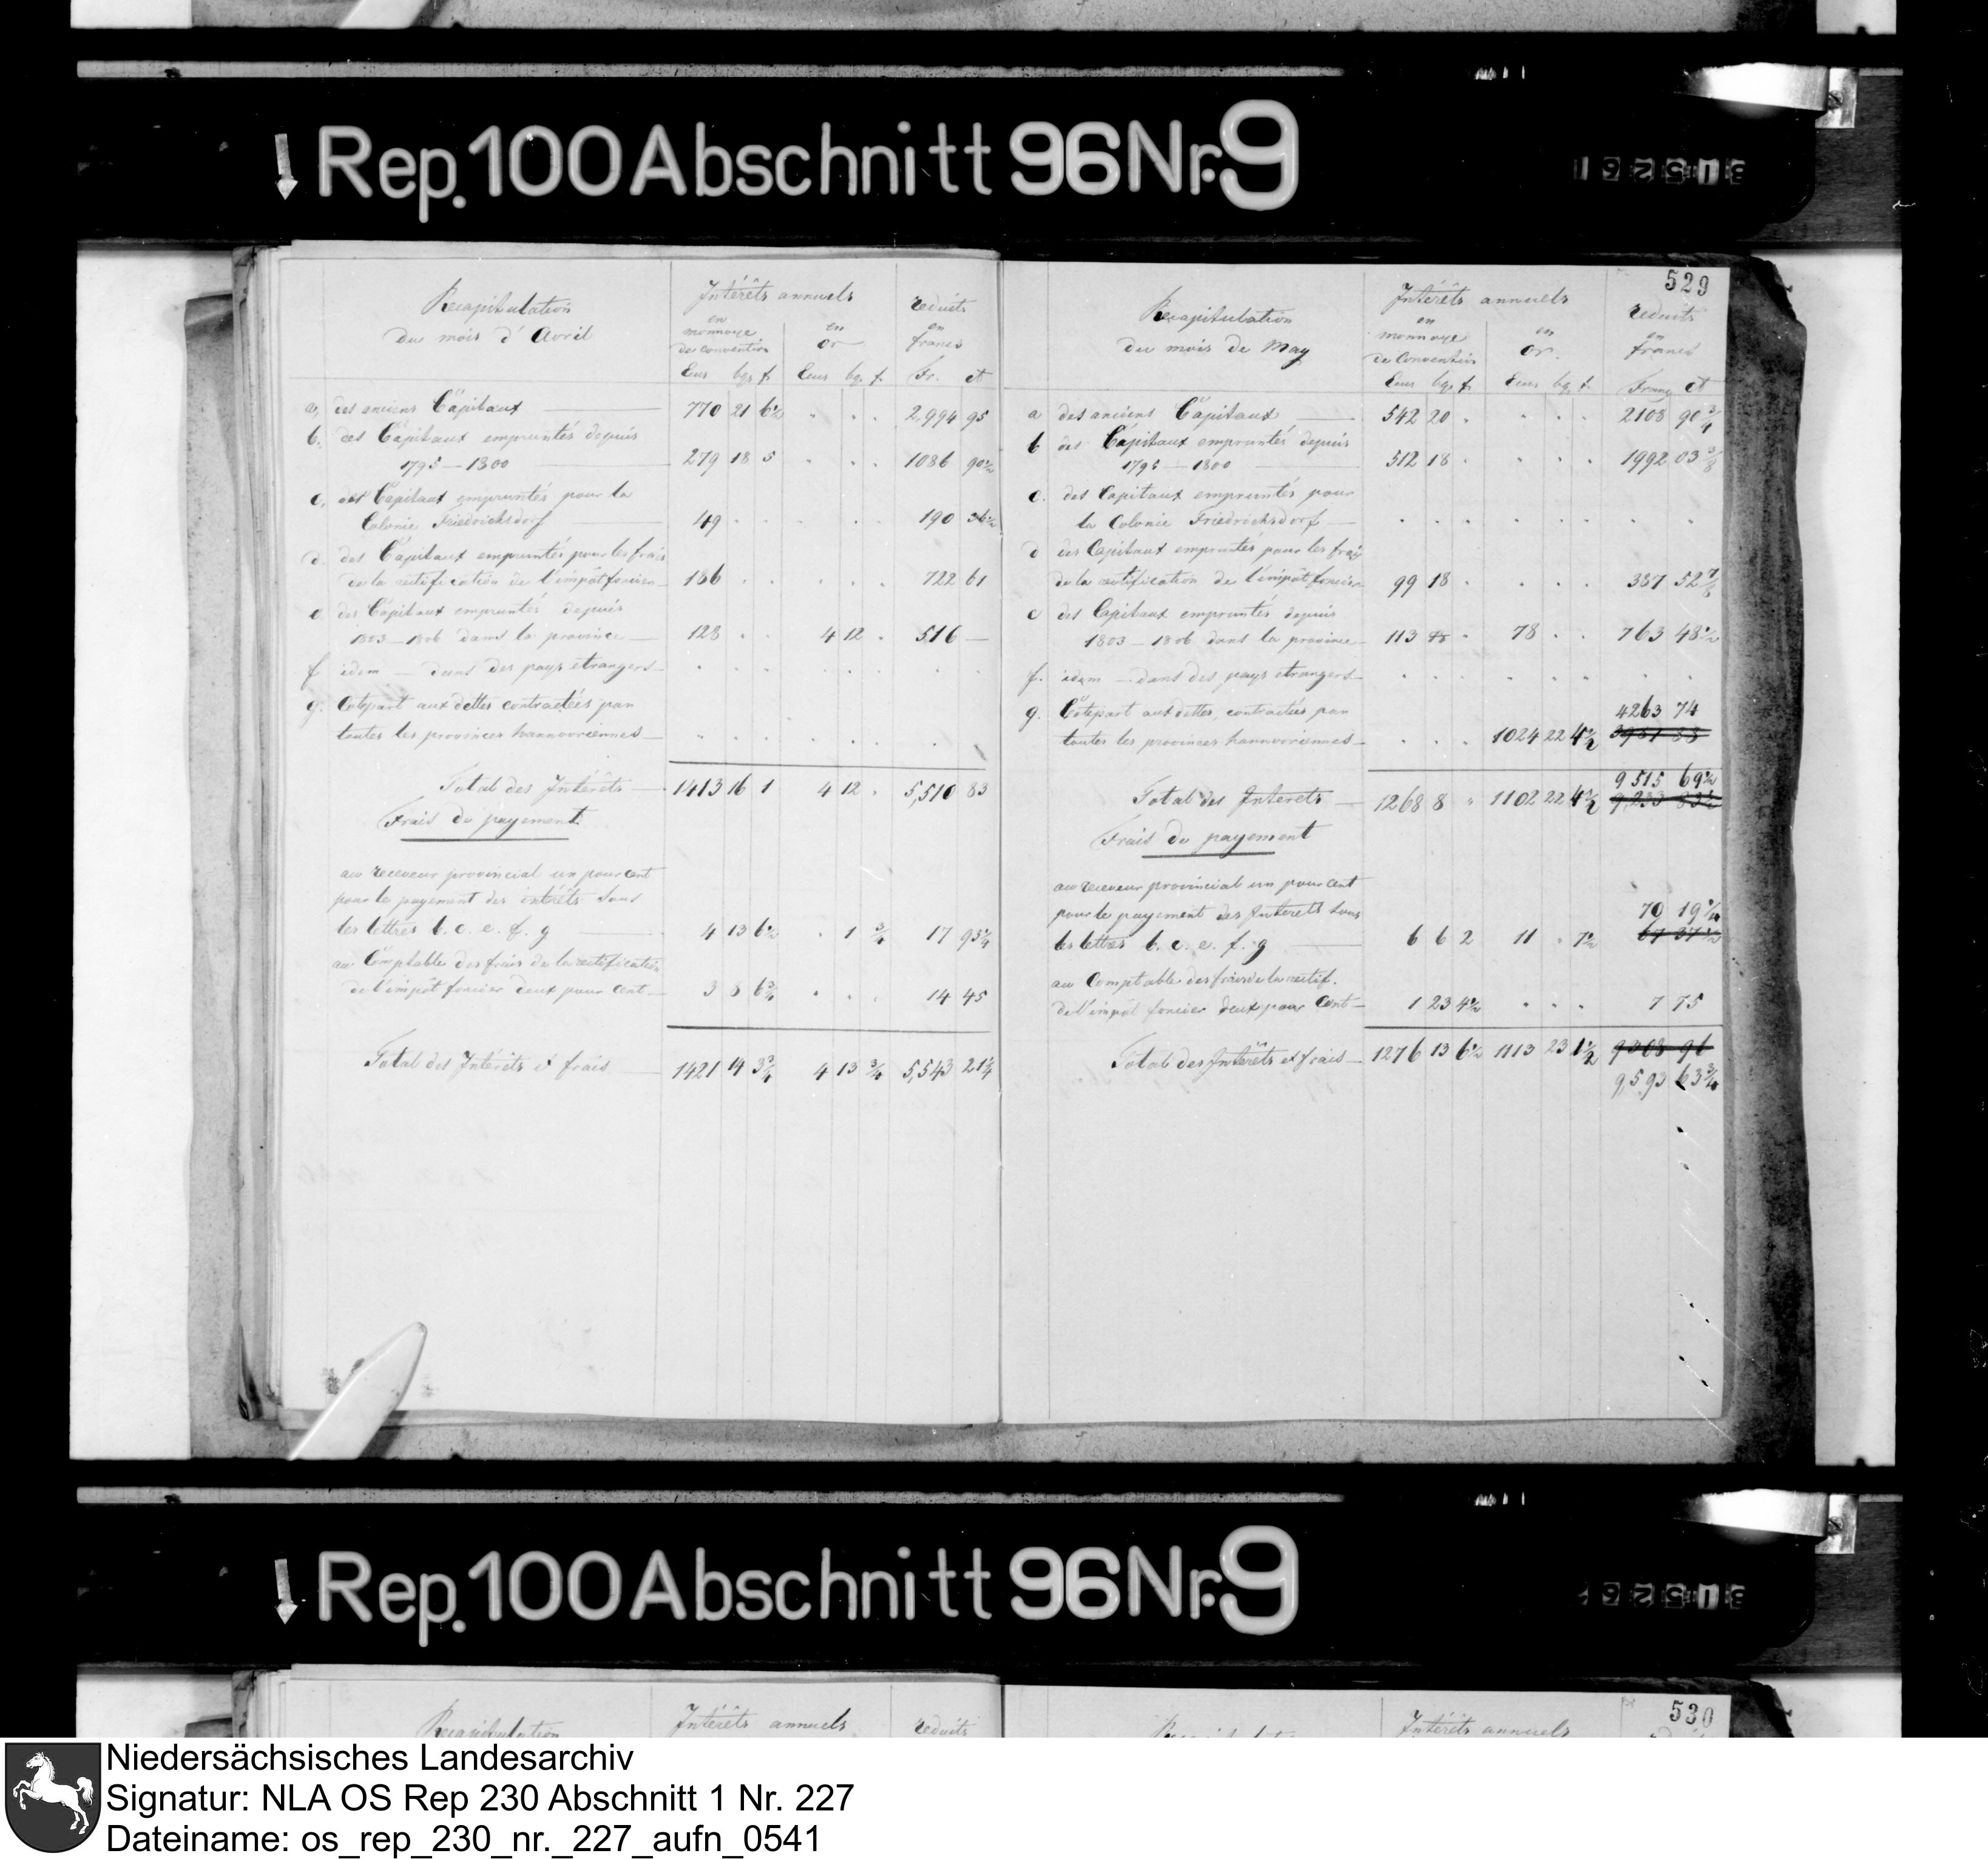 Rep. 100 Abschnitt 96 Nr. 9
Recapitulation
du mois d'Avril
Intérêts annuels
reduits
en monnoye de Convention
en or
en francs
Ecus bgr f. Ecus bgr f. Fr. ct
a, des anciens Capitaux 770 21 6½ 2,994 95
b. des Capitaux empruntés depuis
1795 — 1800 279 18 5 1086 90½
c, des Capitaux empruntés pour la
Colonie Friedrichsdorf 49 190 36½
d. des Capitaux empruntés pour les frais
de la rectification de l'impôt foncier 186 722 61
e des Capitaux empruntés depuis
1803 — 1806 dans la province 128 4 12 516 —
f idem — dans des pays etrangers
g. Cotepart aux dettes contractées par
toutes les provinces hannovriennes
Total des Intérêts 1413 16 1 4 12 5,510 83
Frais de payement
au receveur provincial un pour cent
pour le payement des intérêts sous
les lettres b. c. e. f. g 4 13 6½ 1 ¾ 17 93¼
au Comptable des frais de la rectification
de l'impôt foncier deux pour Cent 3 8 6¾ 14 45
Total des Intérêts et frais 1421 14 3¾ 4 13 ¾ 5,543 21¼
529
Recapitulation
du mois de May
Intérêts annuels
reduits
en monnoye de Convention
en or.
en francs
Ecus bgr f. Ecus bgr f. Francs ct
a des anciens Capitaux 542 20 2108 90¾
b des Capitaux empruntés depuis
1795 — 1800 512 18 1992 03⅜
c. des Capitaux empruntés pour
la Colonie Friedrichsdorf
d des Capitaux empruntés pour les frais
de la rectification de l'impôt foncier 99 18 387 52⅞
e des Capitaux empruntés depuis
1803 — 1806 dans la province 113 78 763 48½
f. idem — dans des pays etrangers
g. Côtepart aux dettes, contractées par
4263 74
toutes les provinces hannovriennes 1024 22 4½ 3981 88
9 515 69½
Total des Intérêts 1268 8 1102 22 4½ 9,233 83½
Frais de payement
au receveur provincial un pour cent
pour le payement des Intérêts sous
70 19¼
les lettres b. c. e. f. g 6 6 2 11 7½ 67 37½
au Comptable des frais de la rectif.
de l'impôt foncier deux pour Cent 1 23 4½ 7 75
Total des Intérêts et frais 1276 13 6½ 1113 23 1½ 9308 96
9,593 63¾
Rep. 100 Abschnitt 96 Nr. 9
Recapitulation Intérêts annuels reduits
Intérêts annuels
530
Niedersächsisches Landesarchiv
Signatur: NLA OS Rep 230 Abschnitt 1 Nr. 227
Dateiname: os_rep_230_nr._227_aufn_0541